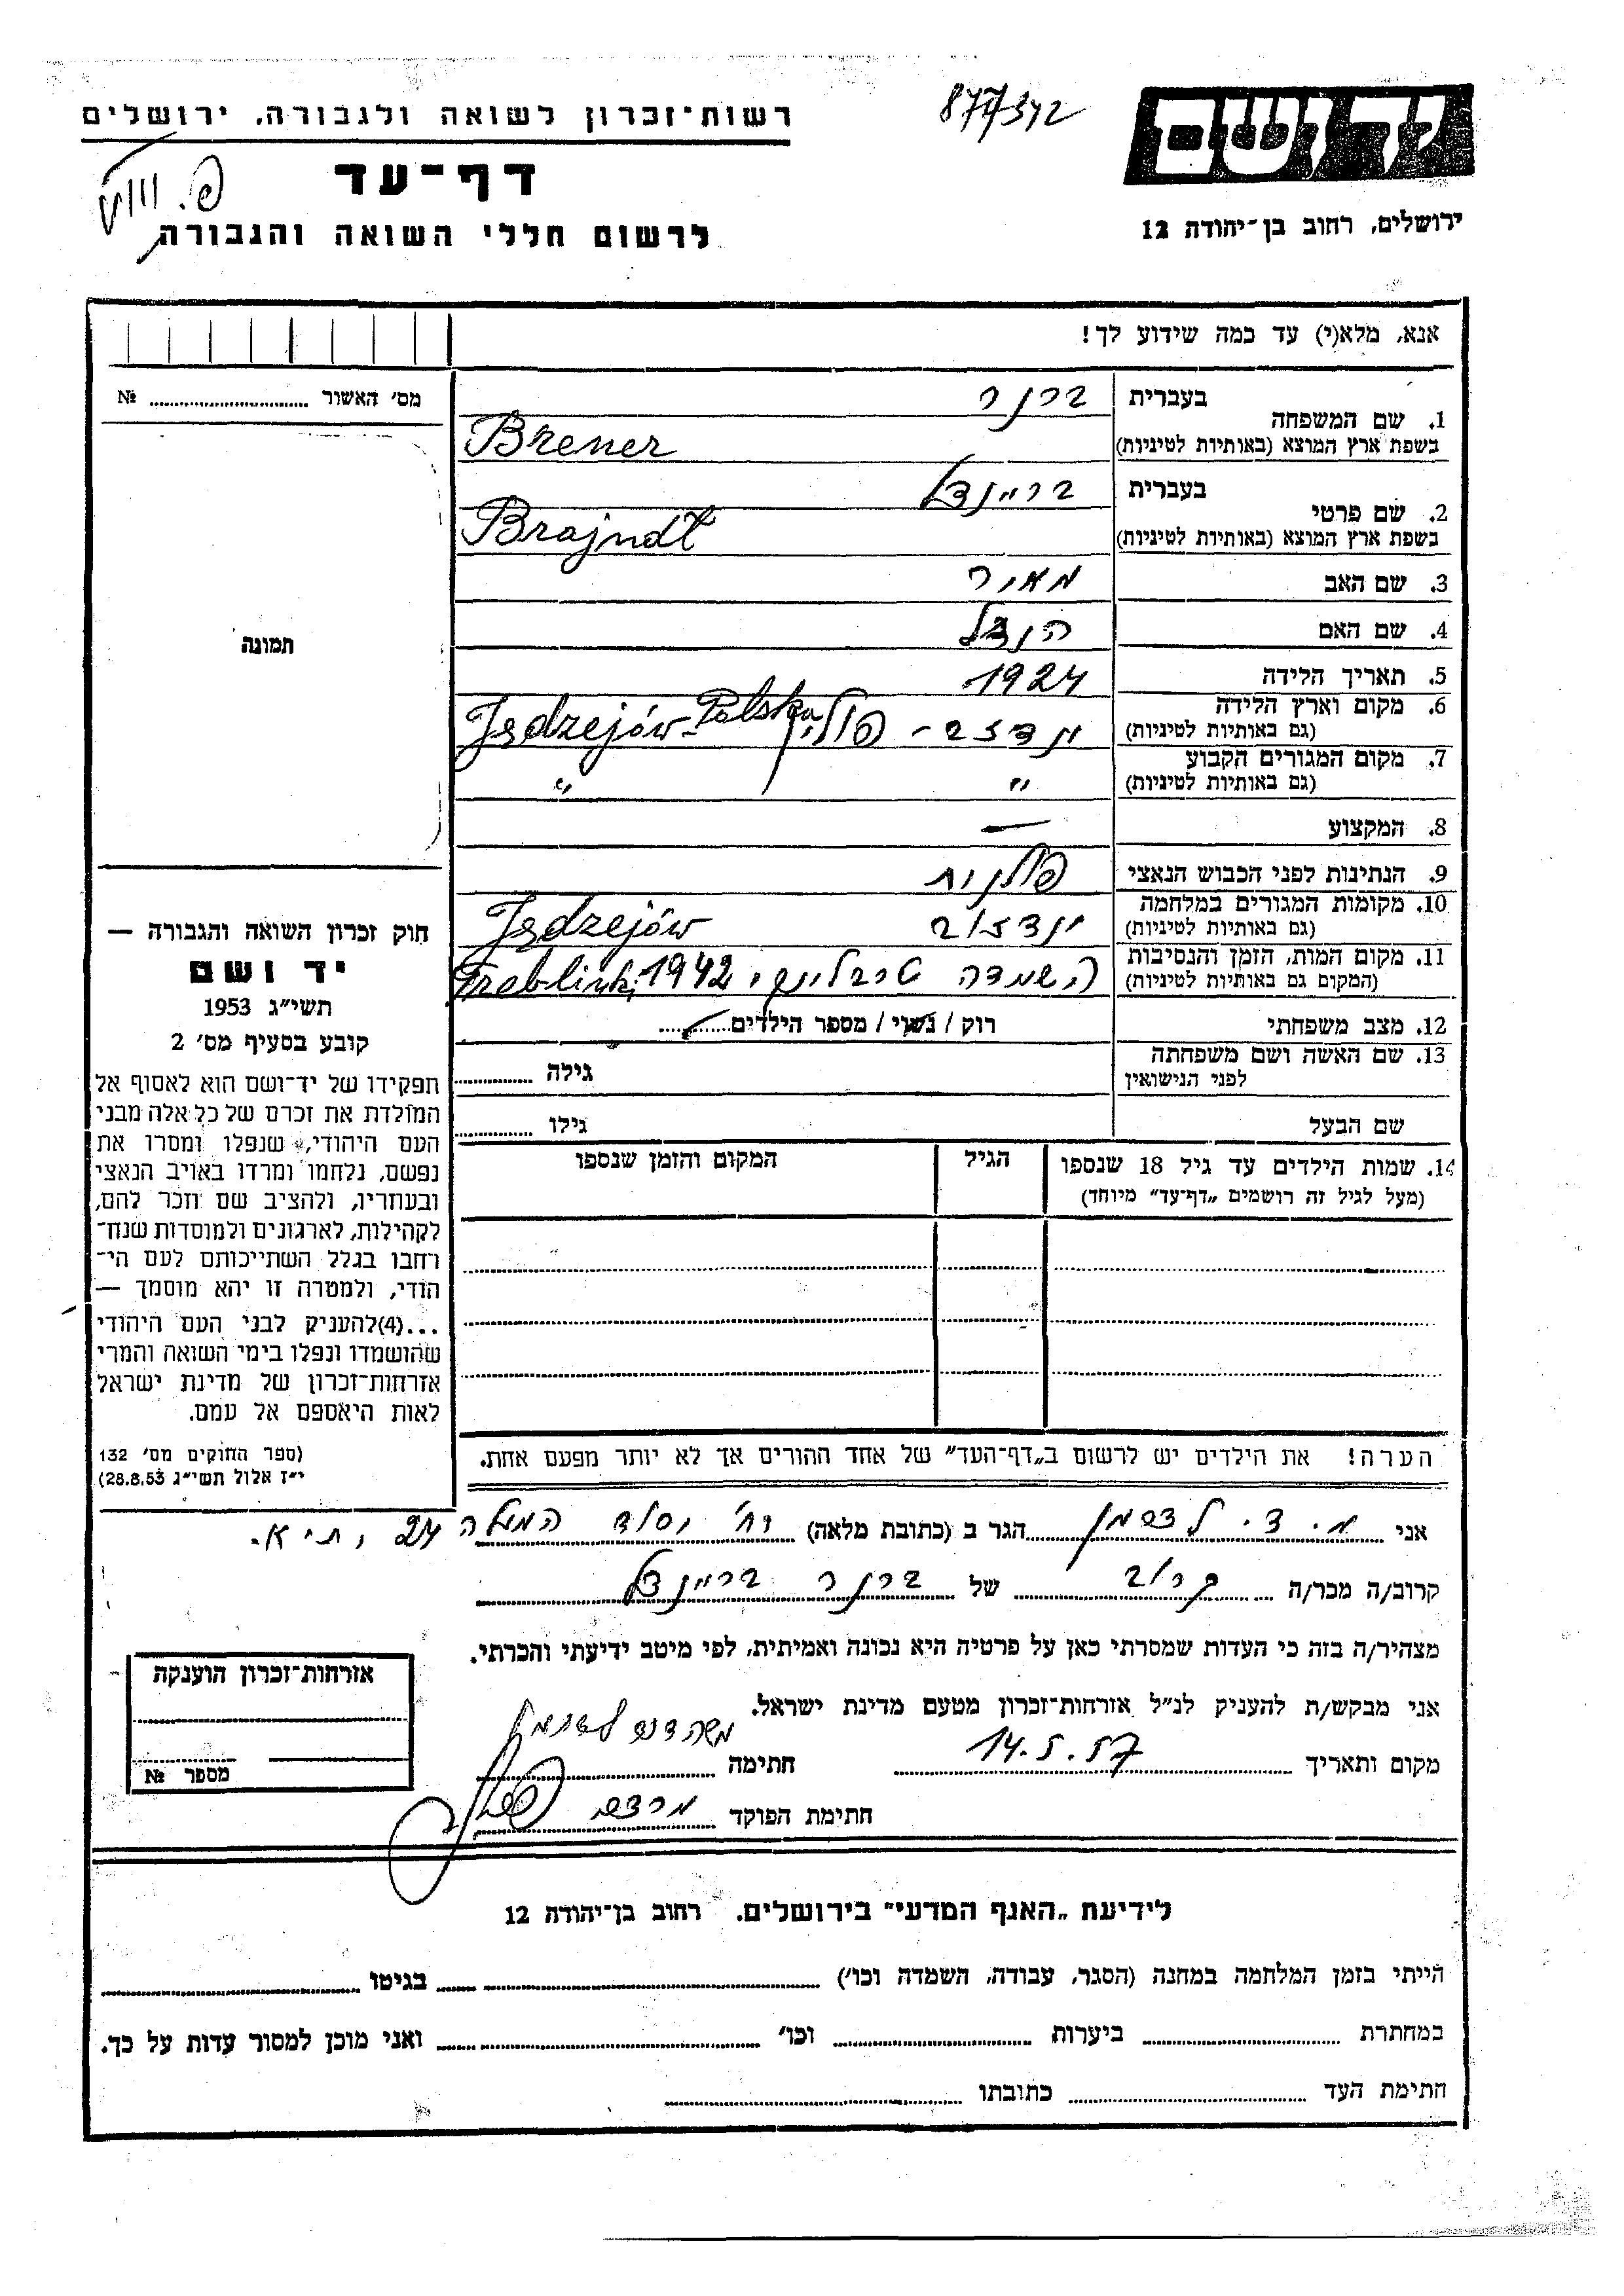 רשות־זכרון לשואה ולגבורה, ירושלים
877342
יד ושם
דף־עד
לרשום חללי השואה והגבורה
ירושלים, רחוב בן־יהודה 12
אנא, מלא(י) עד כמה שידוע לך!
מס׳ האשור ........ №
1. שם המשפחה בעברית ברנר
בשפת ארץ המוצא (באותיות לטיניות) Brener
2. שם פרטי בעברית בריינדל
בשפת ארץ המוצא (באותיות לטיניות) Brajndl
3. שם האב מאיר
4. שם האם הנדל
5. תאריך הלידה 1924
6. מקום וארץ הלידה ינדזב - פולין Jędzejów - Polska
(גם באותיות לטיניות)
7. מקום המגורים הקבוע
(גם באותיות לטיניות) " "
8. המקצוע —
9. הנתינות לפני הכבוש הנאצי פולנית
10. מקומות המגורים במלחמה ינדזוב Jędzejów
(גם באותיות לטיניות)
11. מקום המות, הזמן והנסיבות השמדה טרבלינקי 1942 Treblinki
(המקום גם באותיות לטיניות)
12. מצב משפחתי רוק / נשוי / מספר הילדים........
13. שם האשה ושם משפחתה גילה ........
לפני הנישואין
שם הבעל גילו ........
14. שמות הילדים עד גיל 18 שנספו הגיל המקום והזמן שנספו
(מעל לגיל זה רושמים „דף־עד" מיוחד)
תמונה
חוק זכרון השואה והגבורה —
יד ושם
תשי״ג 1953
קובע בסעיף מס׳ 2
תפקידו של יד־ושם הוא לאסוף אל
המולדת את זכרם של כל אלה מבני
העם היהודי, שנפלו ומסרו את
נפשם, נלחמו ומרדו באויב הנאצי
ובעוזריו, ולהציב שם וזכר להם,
לקהילות, לארגונים ולמוסדות שנח־
רחבו בגלל השתייכותם לעם הי־
הודי, ולמטרה זו יהא מוסמך —
...(4)להעניק לבני העם היהודי
שהושמדו ונפלו בימי השואה והמרי
אזרחות־זכרון של מדינת ישראל
לאות היאספם אל עמם.
(ספר החוקים מס׳ 132
י״ז אלול תשי״ג 28.8.53)
הערה! את הילדים יש לרשום ב„דף־העד" של אחד ההורים אך לא יותר מפעם אחת.
אני מ. ד. לדרמן הגר ב (כתובת מלאה) רח׳ יסוד המעלה 24, ת״א.
קרוב/ה מכר/ה קרוב של ברנר בריינדל
מצהיר/ה בזה כי העדות שמסרתי כאן על פרטיה היא נכונה ואמיתית, לפי מיטב ידיעתי והכרתי.
אני מבקש/ת להעניק לנ״ל אזרחות־זכרון מטעם מדינת ישראל.
מקום ותאריך 14.5.57 חתימה
חתימת הפוקד מרדכי
אזרחות־זכרון הוענקה
מספר №
לידיעת „האגף המדעי" בירושלים, רחוב בן־יהודה 12
הייתי בזמן המלחמה במחנה (הסגר, עבודה, השמדה וכו׳) ........ בגיטו ........
במחתרת ........ ביערות ........ וכו׳ ........ ואני מוכן למסור עדות על כך.
חתימת העד ........ כתובתו ........